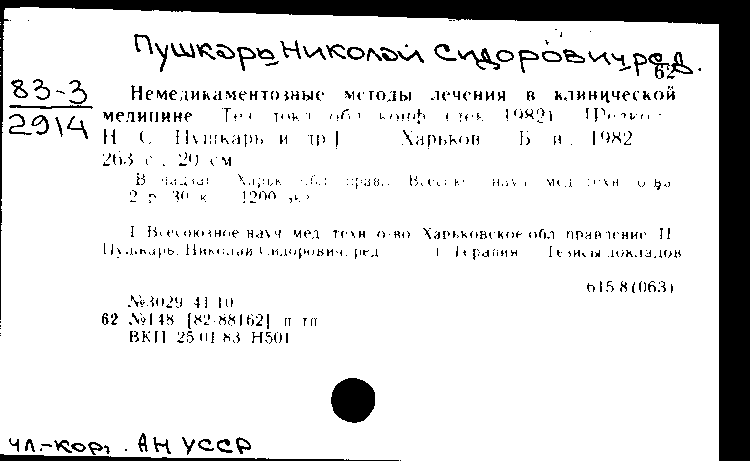 Пушкарь Николай Сидорович, ред.
62
83-3
2914
Немедикаментозные методы лечения в клинической
медицине Тез. докл. обл. конф. (дек. 1982) [Редкол.
Н. С. Пушкарь и др.] Харьков Б. и., 1982
263 с., 20 см
В надзаг. Харьк. обл. правл. Всесоюз. науч. мед. техн. о-ва
2 р. 30 к. 1200 экз.
I. Всесоюзное науч. мед. техн. о-во. Харьковское обл. правление. II.
Пушкарь, Николай Сидорович, ред. 1. Терапия Тезисы докладов
615.8(063)
№3029 41 10
62 №148 [82-88162] п тп
ВКП 25.01.83 Н501
чл.-кор. АН УССР